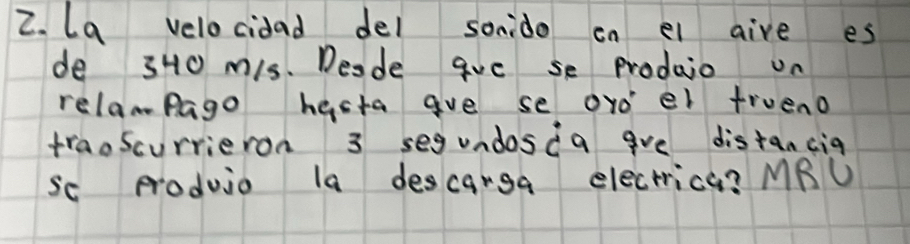 2. La velocidad del sonido en el aire es
de 340 m/s. Desde que se Produjo un
relamPago hasta que se oyó el trueno
transcurrieron 3 segundos ¿a que distancia
se Produjo la descarga electrica? MRU